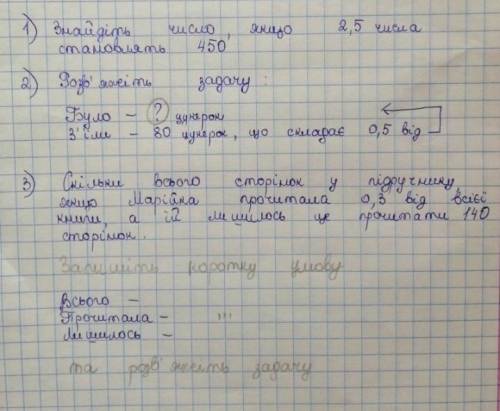 1) Знайдіть число, якщо 2,5 числа
становлять 450
2) Розв'яжіть задачу:
Було - ? цукерок
З'їли - 80 цукерок, що складає 0,5 від
3) Скільки всього сторінок у підручнику,
якщо Марійка прочитала 0,3 від всієї
книги, а їй лишилось ще прочитати 140
сторінок.
Запишіть коротку умову
Всього -
Прочитала - "'
Лишилось -
та розв'яжіть задачу